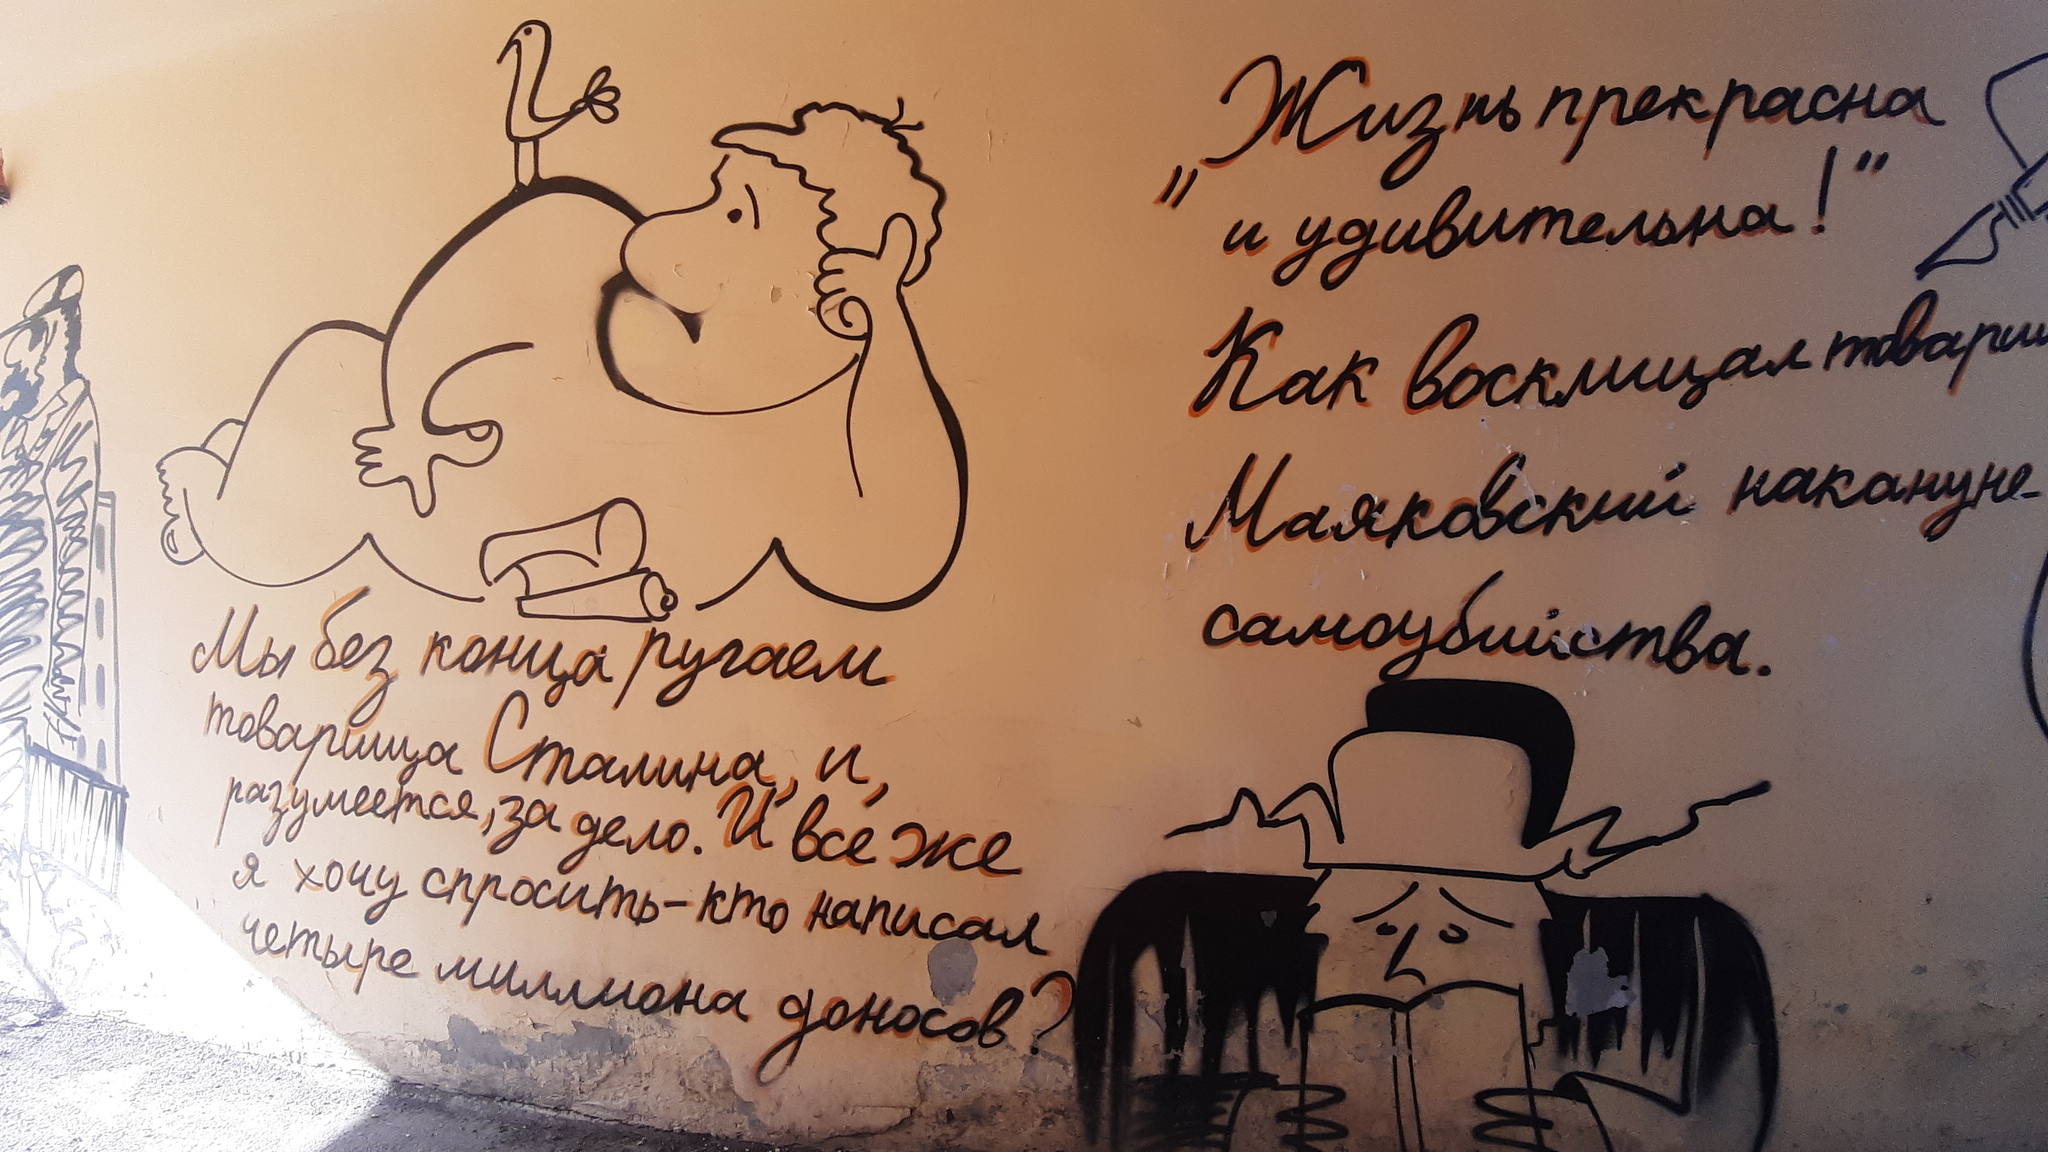 Мы без конца ругаем
товарища Сталина, и,
разумеется, за дело. И все же
я хочу спросить - кто написал
четыре миллиона доносов?
Жизнь прекрасна
" и удивительна! "
Как восклицал товарищ
Маяковский накануне
самоубийства.